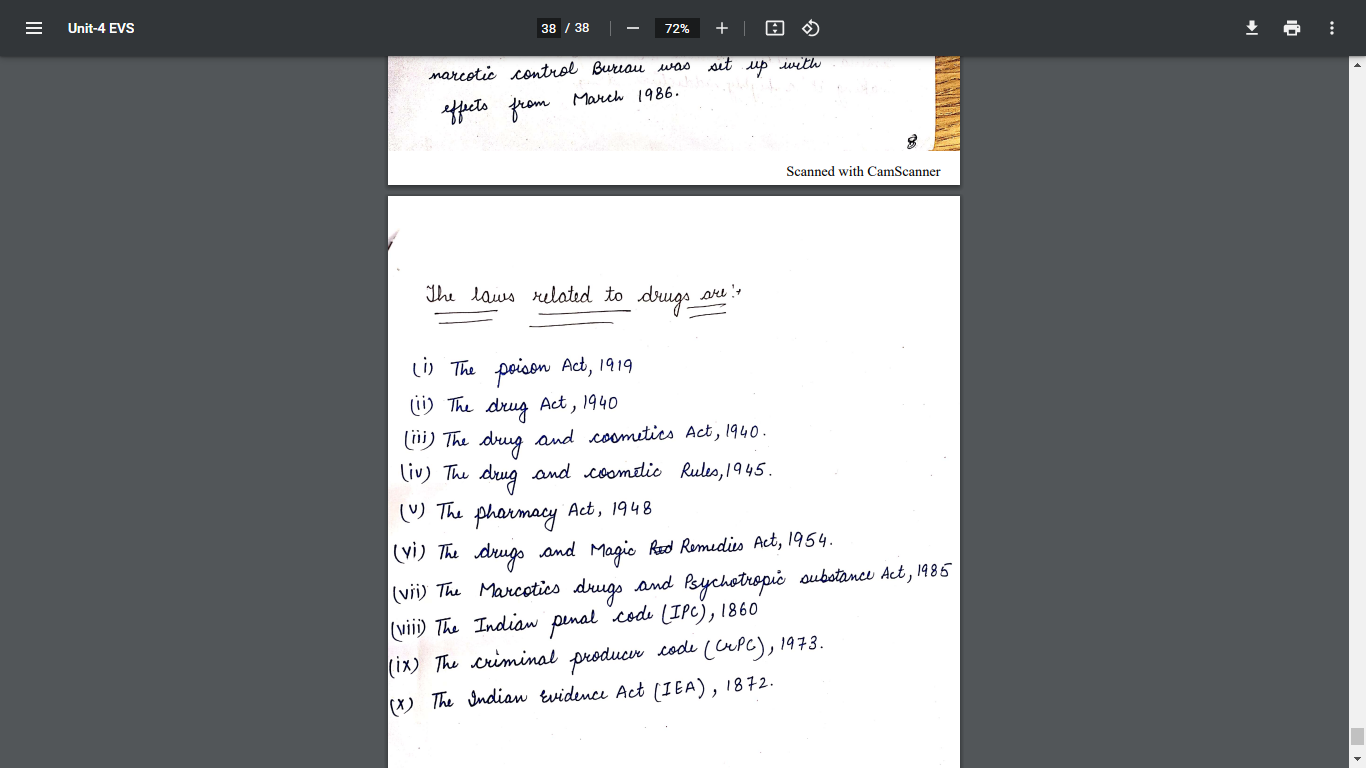 Unit-4 EVS
38 / 38
72%
narcotic control Bureau was set up with
effects from March 1986.
8
Scanned with CamScanner
The laws related to drugs are:→
(i) The poison Act, 1919
(ii) The drug Act, 1940
(iii) The drug and cosmetics Act, 1940.
(iv) The drug and cosmetic Rules, 1945.
(v) The pharmacy Act, 1948
(vi) The drugs and Magic Remedies Act, 1954.
(vii) The Marcotics drugs and Psychotropic substance Act, 1985
(viii) The Indian penal code (IPC), 1860
(ix) The criminal producer code (CrPC), 1973.
(x) The Indian Evidence Act (IEA), 1872.